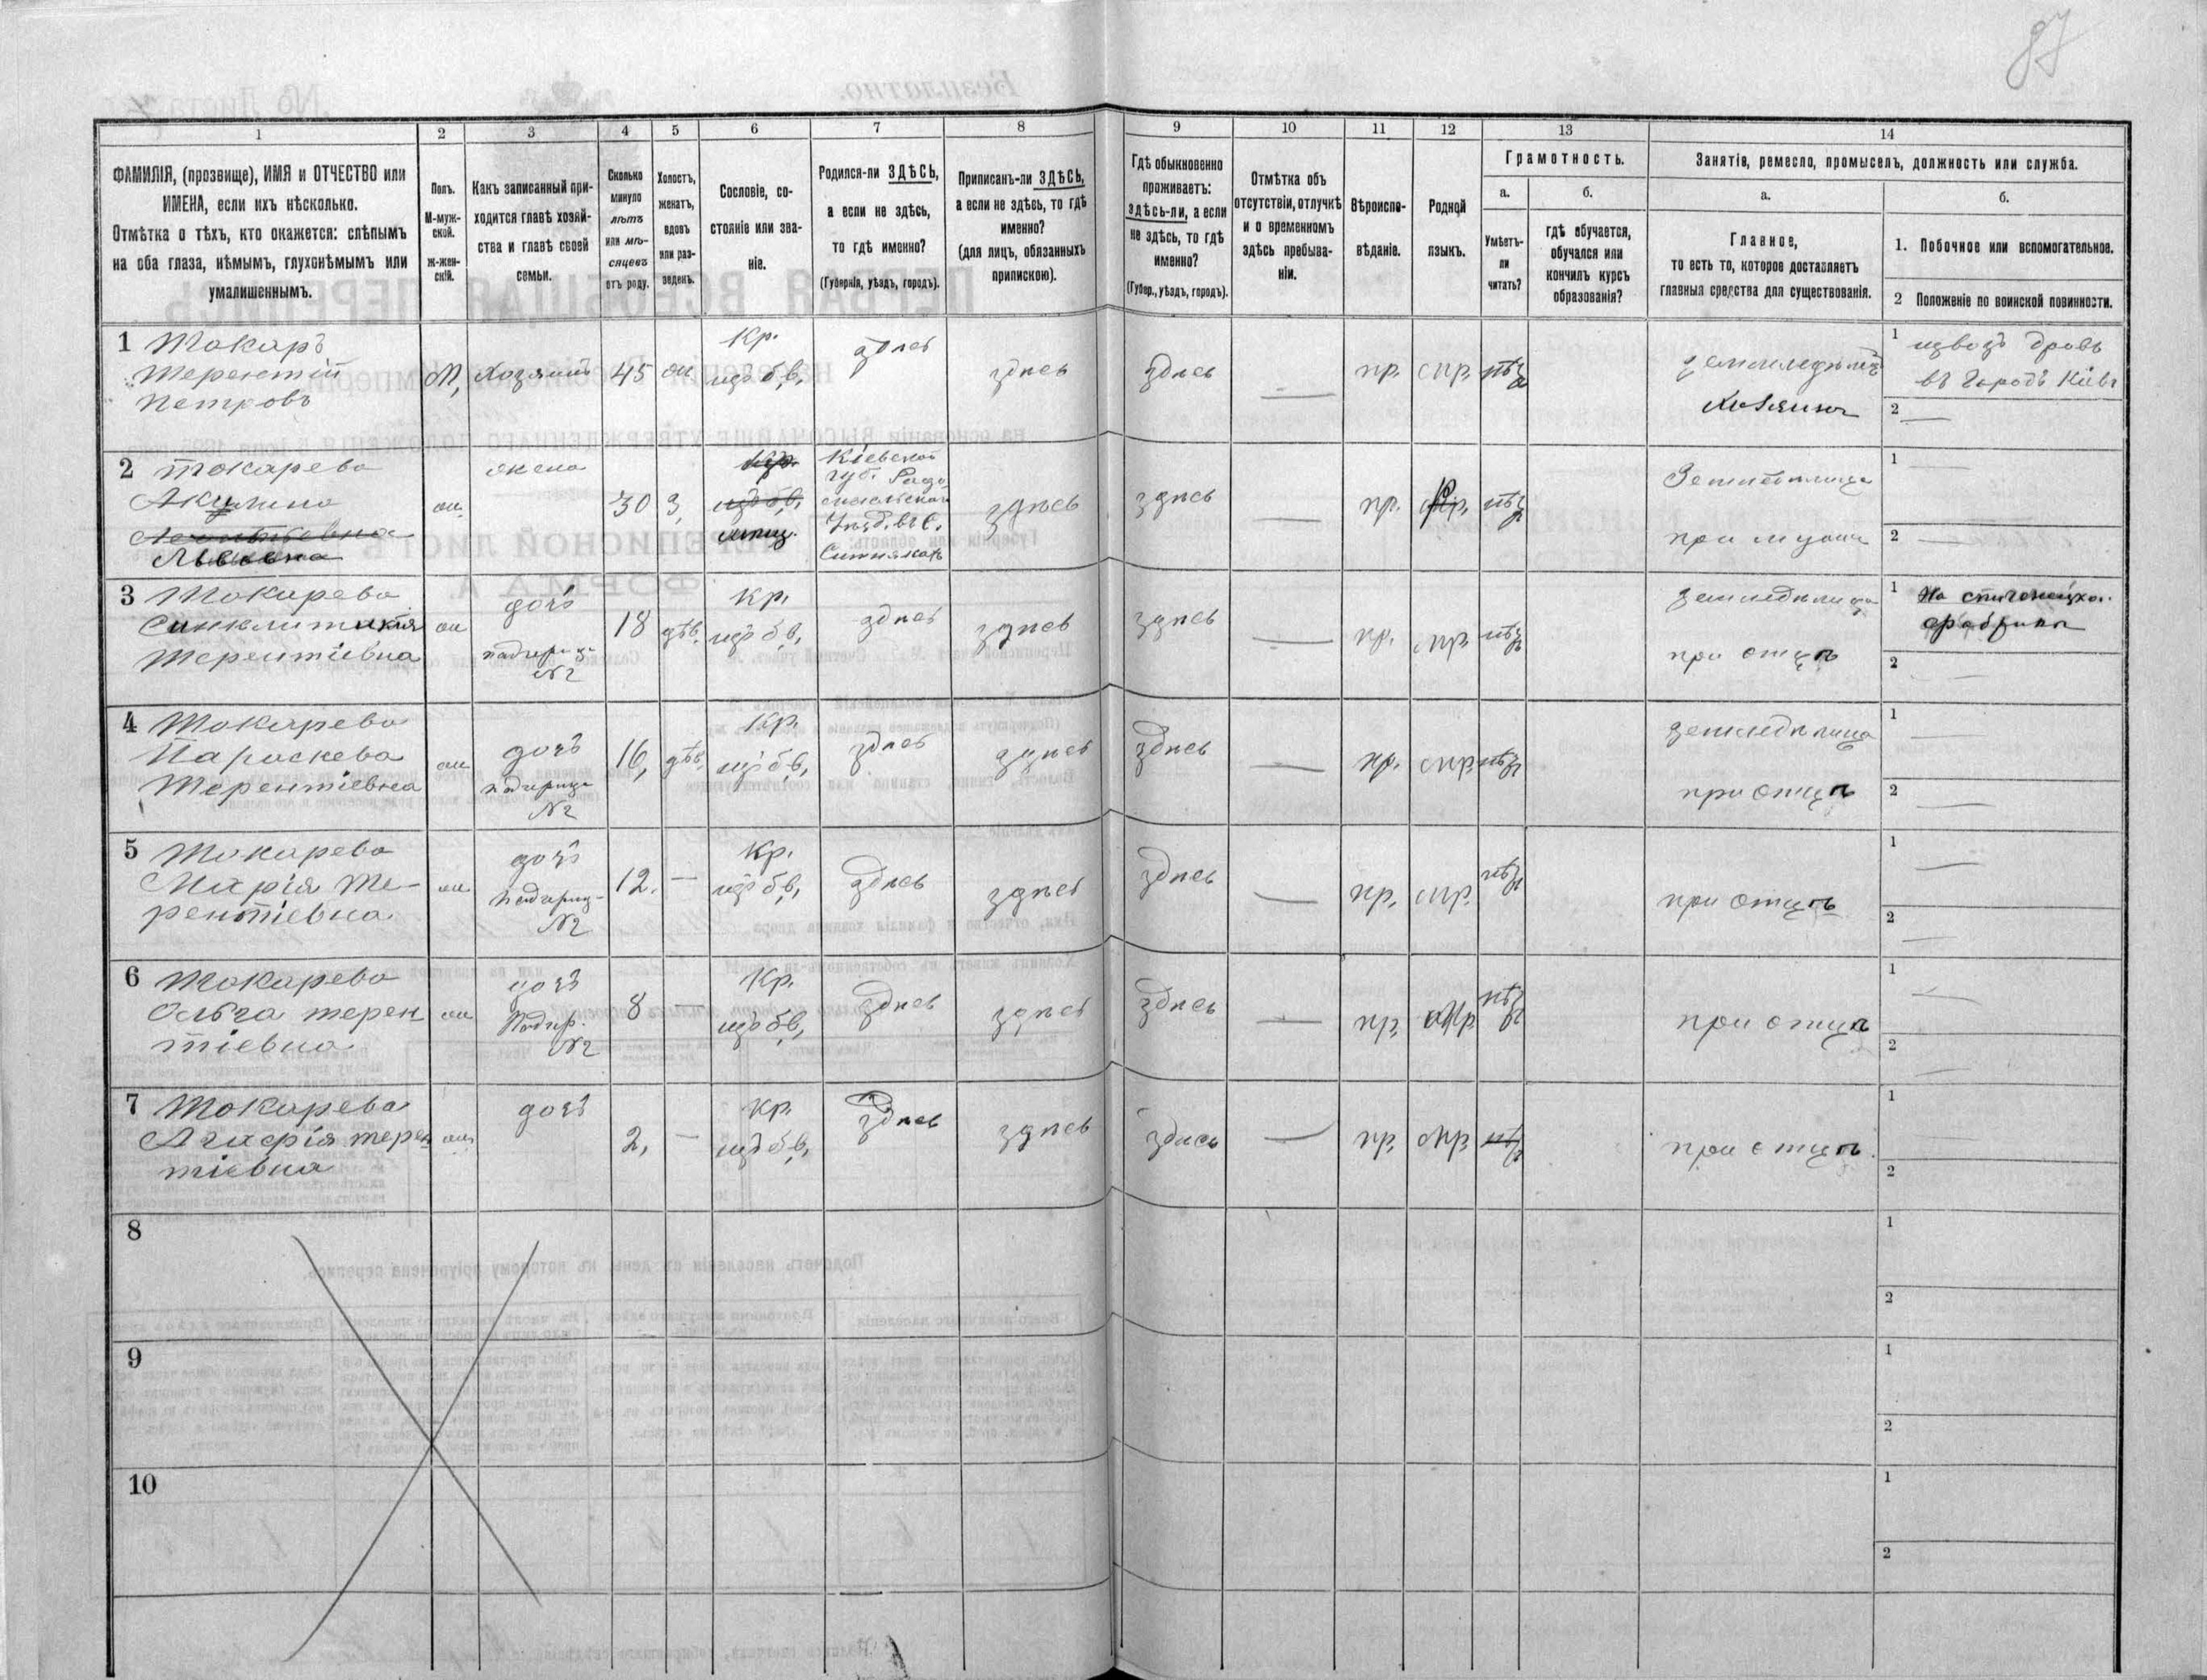 87
1
2
3
4
5
6
7
8
9
10
11
12
13
14
ФАМИЛІЯ, (прозвище), ИМЯ и ОТЧЕСТВО или
ИМЕНА, если ихъ нѣсколько.
Отмѣтка о тѣхъ, кто окажется: слѣпымъ
на оба глаза, нѣмымъ, глухонѣмымъ или
умалишеннымъ.
Полъ.
М-муж-
ской.
ж-жен-
скій.
Какъ записанный при-
ходится главѣ хозяй-
ства и главѣ своей
семьи.
Сколько
минуло
лѣтъ
или мѣ-
сяцевъ
отъ роду.
Холостъ,
женатъ,
вдовъ
или раз-
веденъ.
Сословіе, со-
стояніе или зва-
ніе.
Родился-ли ЗДѢСЬ,
а если не здѣсь,
то гдѣ именно?
(Губернія, уѣздъ, городъ).
Приписанъ-ли ЗДѢСЬ,
а если не здѣсь, то гдѣ
именно?
(для лицъ, обязанныхъ
припискою).
Гдѣ обыкновенно
проживаетъ:
здѣсь-ли, а если
не здѣсь, то гдѣ
именно?
(Губер., уѣздъ, городъ).
Отмѣтка объ
отсутствіи, отлучкѣ
и о временномъ
здѣсь пребыва-
ніи.
Вѣроиспо-
вѣданіе.
Родной
языкъ.
Грамотность.
а.
Умѣетъ-
ли
читать?
б.
гдѣ обучается,
обучался или
кончилъ курсъ
образованія?
Занятіе, ремесло, промыселъ, должность или служба.
а.
Главное,
то есть то, которое доставляетъ
главныя средства для существованія.
б.
1. Побочное или вспомогательное.
2 Положеніе по воинской повинности.
1 Токаръ
Терентій
Петровъ
М, Хозяинъ 45 ж
Кр.
изъ б,в,
здѣсь здѣсь здѣсь — пр. мр. нѣтъ
земледѣлецъ
Хозяинъ
1 извозъ дровъ
въ городъ Кіевъ
2 —
2 Токарева
Акулина
Леонтьевна
Львовна
ж. жена 30 З,
кр.
изъ б,в,
мѣщ.
Кіевской
губ. Радо
мысльскаго
Уѣзд. въ с.
Ситнякахъ
здѣсь здѣсь — пр. мр. нѣтъ
Земледѣлица
при мужѣ
1 —
2 —
3 Токарева
Синклитикія
Терентіевна
ж дочь
падчерица
№2
18 дѣв.
Кр.
изъ б,в,
здѣсь здѣсь здѣсь — пр. мр. нѣтъ
земледѣлица
при отцѣ
1 На спичечной
фабрики
2 —
4 Токарева
Параскева
Терентіевна
ж дочь
падчерица
№2
16, дѣв.
Кр.
изъ б,в,
здѣсь здѣсь здѣсь — пр. мр. нѣтъ
земледѣлица
при отцѣ
1 —
2 —
5 Токарева
Марія Те-
рентіевна
ж дочь
падчериц-
№2
12. —
Кр.
изъ б,в,
здѣсь здѣсь здѣсь — пр. мр. нѣтъ
при отцѣ
1 —
2 —
6 Токарева
Ольга терен
тіевна
ж дочь
Падчер.
№2
8 —
Кр.
изъ б,в,
здѣсь здѣсь здѣсь — пр. мр нѣтъ
при отцѣ
1 —
2 —
7 Токарева
Агафія терен
тіевна
ж дочь 2, —
Кр.
изъ б,в,
здѣсь здѣсь здѣсь — пр. мр. нѣтъ
при отцѣ
1
2
8
1
2
9
1
2
10
1
2